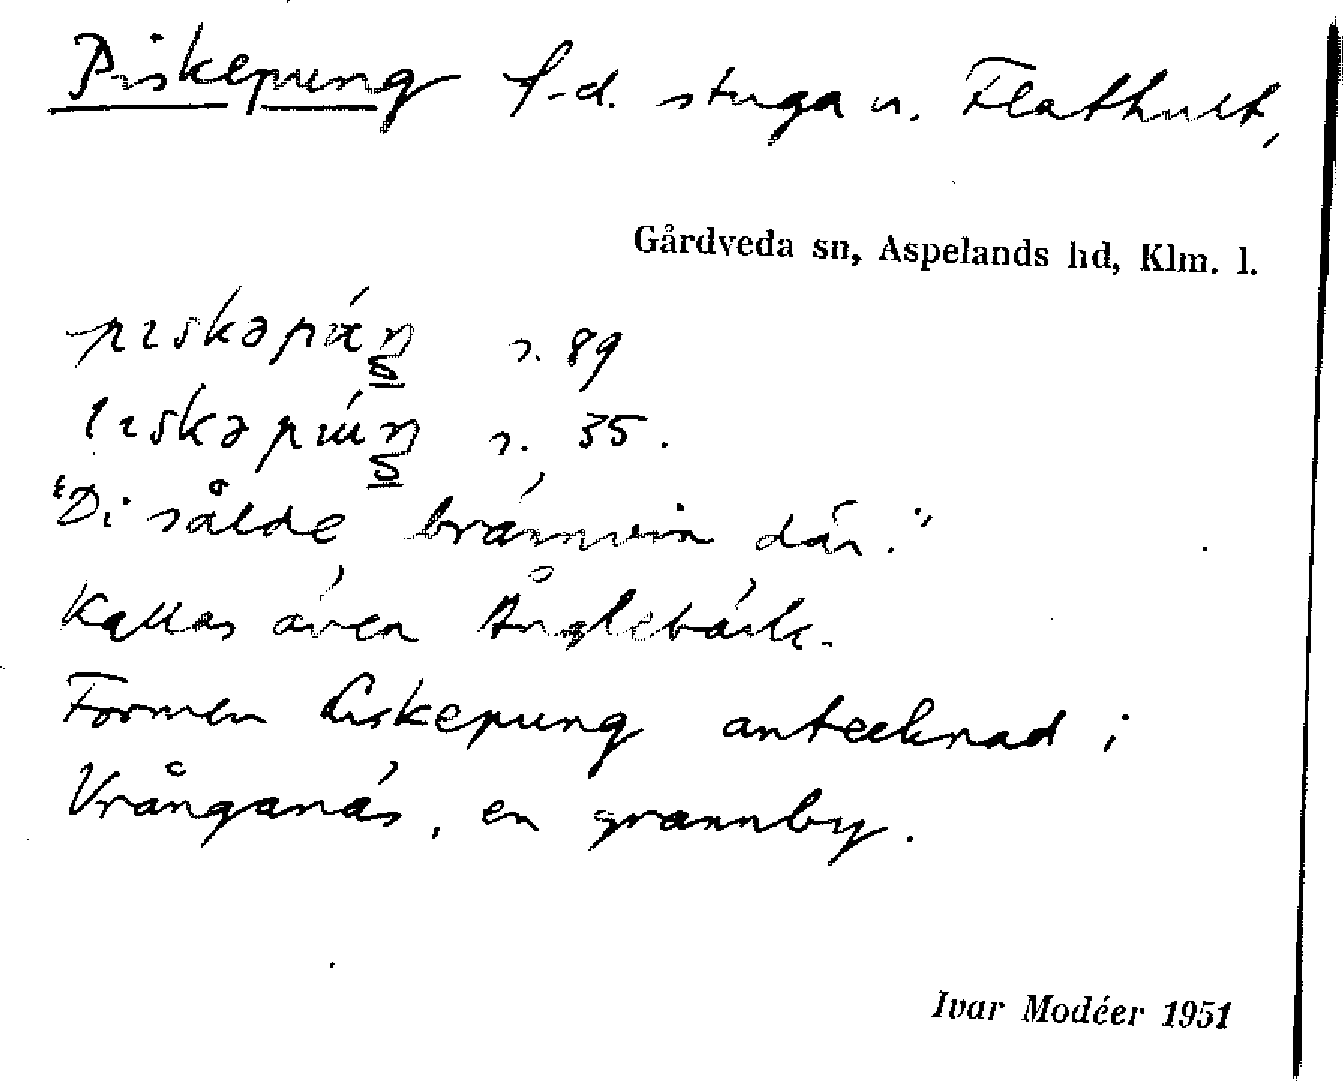 Piskepung f.d. stuga u. Flathult,
Gårdveda sn, Aspelands hd, Klm. l.
s. 89
s. 35.
"Di sålde brännvin där."
Kallas även Änglebäck.
Formen Liskepung antecknad i
Vrånganäs, en grannby.
Ivar Modéer 1951